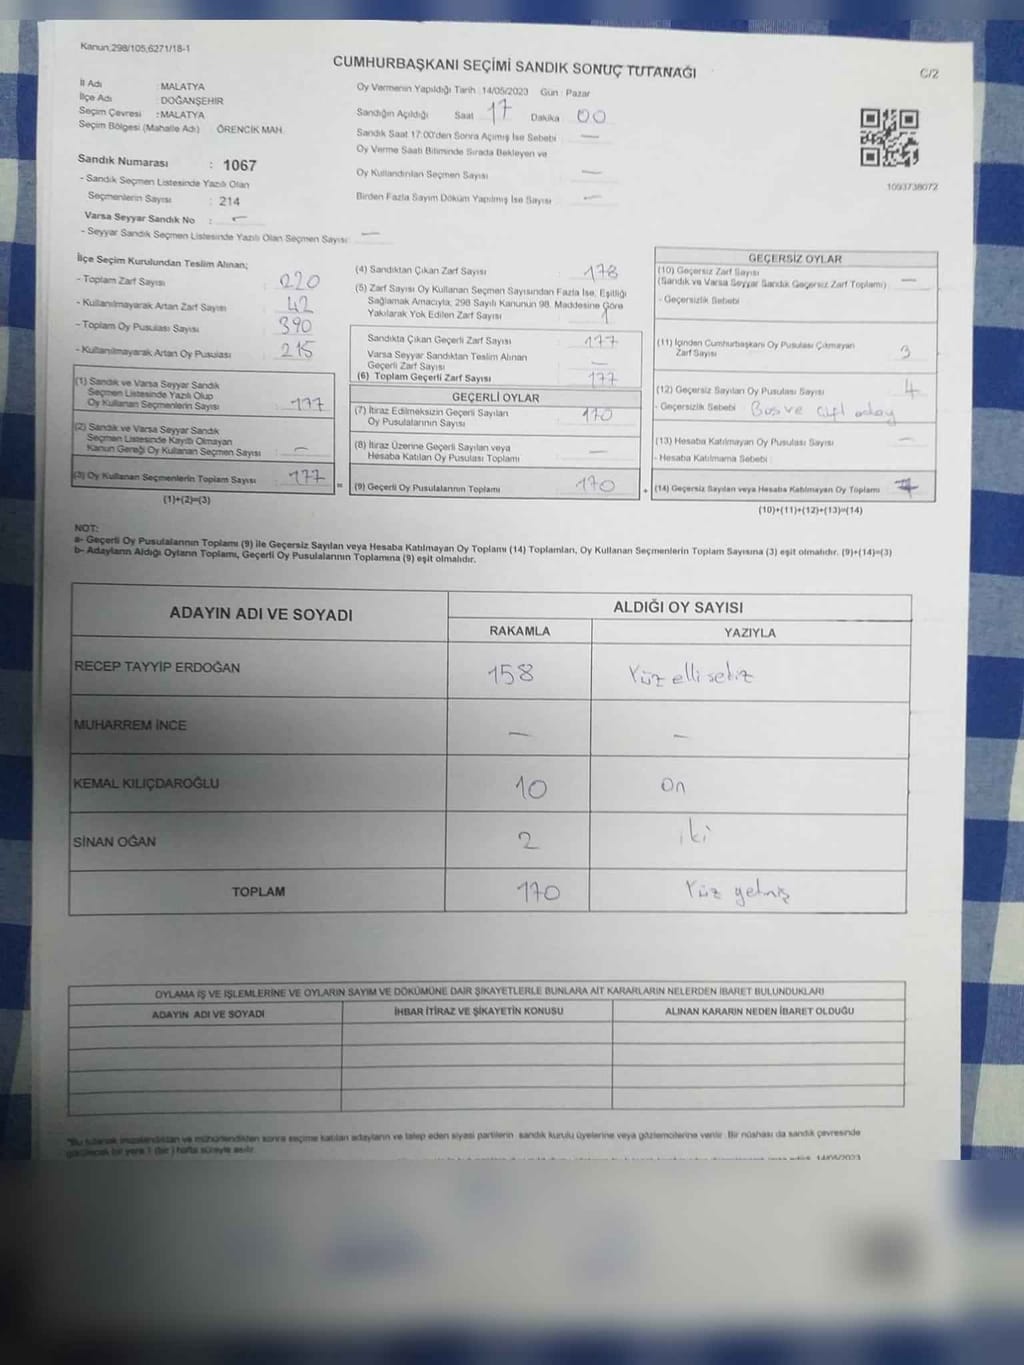 Kanun;298/105,6271/18-1
CUMHURBAŞKANI SEÇİMİ SANDIK SONUÇ TUTANAĞI
C/2
İl Adı : MALATYA
İlçe Adı : DOĞANŞEHİR
Seçim Çevresi : MALATYA
Seçim Bölgesi (Mahalle Adı) : ÖRENCİK MAH.
Oy Vermenin Yapıldığı Tarih : 14/05/2023 Gün : Pazar
Sandığın Açıldığı Saat 17 Dakika 00
Sandık Saat 17:00'den Sonra Açılmış İse Sebebi —
Oy Verme Saati Bitiminde Sırada Bekleyen ve
Oy Kullandırılan Seçmen Sayısı —
Birden Fazla Sayım Döküm Yapılmış İse Sayısı —
1093738072
Sandık Numarası : 1067
- Sandık Seçmen Listesinde Yazılı Olan
Seçmenlerin Sayısı : 214
Varsa Seyyar Sandık No : —
- Seyyar Sandık Seçmen Listesinde Yazılı Olan Seçmen Sayısı : —
İlçe Seçim Kurulundan Teslim Alınan;
- Toplam Zarf Sayısı : 220
- Kullanılmayarak Artan Zarf Sayısı : 42
- Toplam Oy Pusulası Sayısı : 390
- Kullanılmayarak Artan Oy Pusulası : 215
(1) Sandık ve Varsa Seyyar Sandık
Seçmen Listesinde Yazılı Olup
Oy Kullanan Seçmenlerin Sayısı : 177
(2) Sandık ve Varsa Seyyar Sandık
Seçmen Listesinde Kayıtlı Olmayan
Kanun Gereği Oy Kullanan Seçmen Sayısı : —
(3) Oy Kullanan Seçmenlerin Toplam Sayısı : 177
(1)+(2)=(3)
(4) Sandıktan Çıkan Zarf Sayısı : 178
(5) Zarf Sayısı Oy Kullanan Seçmen Sayısından Fazla İse, Eşitliği
Sağlamak Amacıyla, 298 Sayılı Kanunun 98. Maddesine Göre
Yakılarak Yok Edilen Zarf Sayısı : 1
Sandıkta Çıkan Geçerli Zarf Sayısı : 177
Varsa Seyyar Sandıktan Teslim Alınan
Geçerli Zarf Sayısı : —
(6) Toplam Geçerli Zarf Sayısı : 177
GEÇERLİ OYLAR
(7) İtiraz Edilmeksizin Geçerli Sayılan
Oy Pusulalarının Sayısı : 170
(8) İtiraz Üzerine Geçerli Sayılan veya
Hesaba Katılan Oy Pusulası Toplamı : —
= (9) Geçerli Oy Pusulalarının Toplamı : 170
GEÇERSİZ OYLAR
(10) Geçersiz Zarf Sayısı
(Sandık ve Varsa Seyyar Sandık Geçersiz Zarf Toplamı) —
- Geçersizlik Sebebi :
(11) İçinden Cumhurbaşkanı Oy Pusulası Çıkmayan
Zarf Sayısı : 3
(12) Geçersiz Sayılan Oy Pusulası Sayısı : 4
- Geçersizlik Sebebi : Boş ve çift aday
(13) Hesaba Katılmayan Oy Pusulası Sayısı : —
- Hesaba Katılmama Sebebi :
+ (14) Geçersiz Sayılan veya Hesaba Katılmayan Oy Toplamı : 7
(10)+(11)+(12)+(13)=(14)
NOT:
a- Geçerli Oy Pusulalarının Toplamı (9) ile Geçersiz Sayılan veya Hesaba Katılmayan Oy Toplamı (14) Toplamları, Oy Kullanan Seçmenlerin Toplam Sayısına (3) eşit olmalıdır. (9)+(14)=(3)
b- Adayların Aldığı Oyların Toplamı, Geçerli Oy Pusulalarının Toplamına (9) eşit olmalıdır.
ADAYIN ADI VE SOYADI ALDIĞI OY SAYISI
RAKAMLA YAZIYLA
RECEP TAYYİP ERDOĞAN 158 Yüz elli sekiz
MUHARREM İNCE — —
KEMAL KILIÇDAROĞLU 10 On
SİNAN OĞAN 2 iki
TOPLAM 170 Yüz yetmiş
OYLAMA İŞ VE İŞLEMLERİNE VE OYLARIN SAYIM VE DÖKÜMÜNE DAİR ŞİKAYETLERLE BUNLARA AİT KARARLARIN NELERDEN İBARET BULUNDUKLARI
ADAYIN ADI VE SOYADI İHBAR İTİRAZ VE ŞİKAYETİN KONUSU ALINAN KARARIN NEDEN İBARET OLDUĞU
*Bu tutanak imzalandıktan ve mühürlendikten sonra seçime katılan adayların ve talep eden siyasi partilerin sandık kurulu üyelerine veya gözlemcilerine verilir. Bir nüshası da sandık çevresinde
görülecek bir yere 1 (bir) hafta süreyle asılır.
14/05/2023